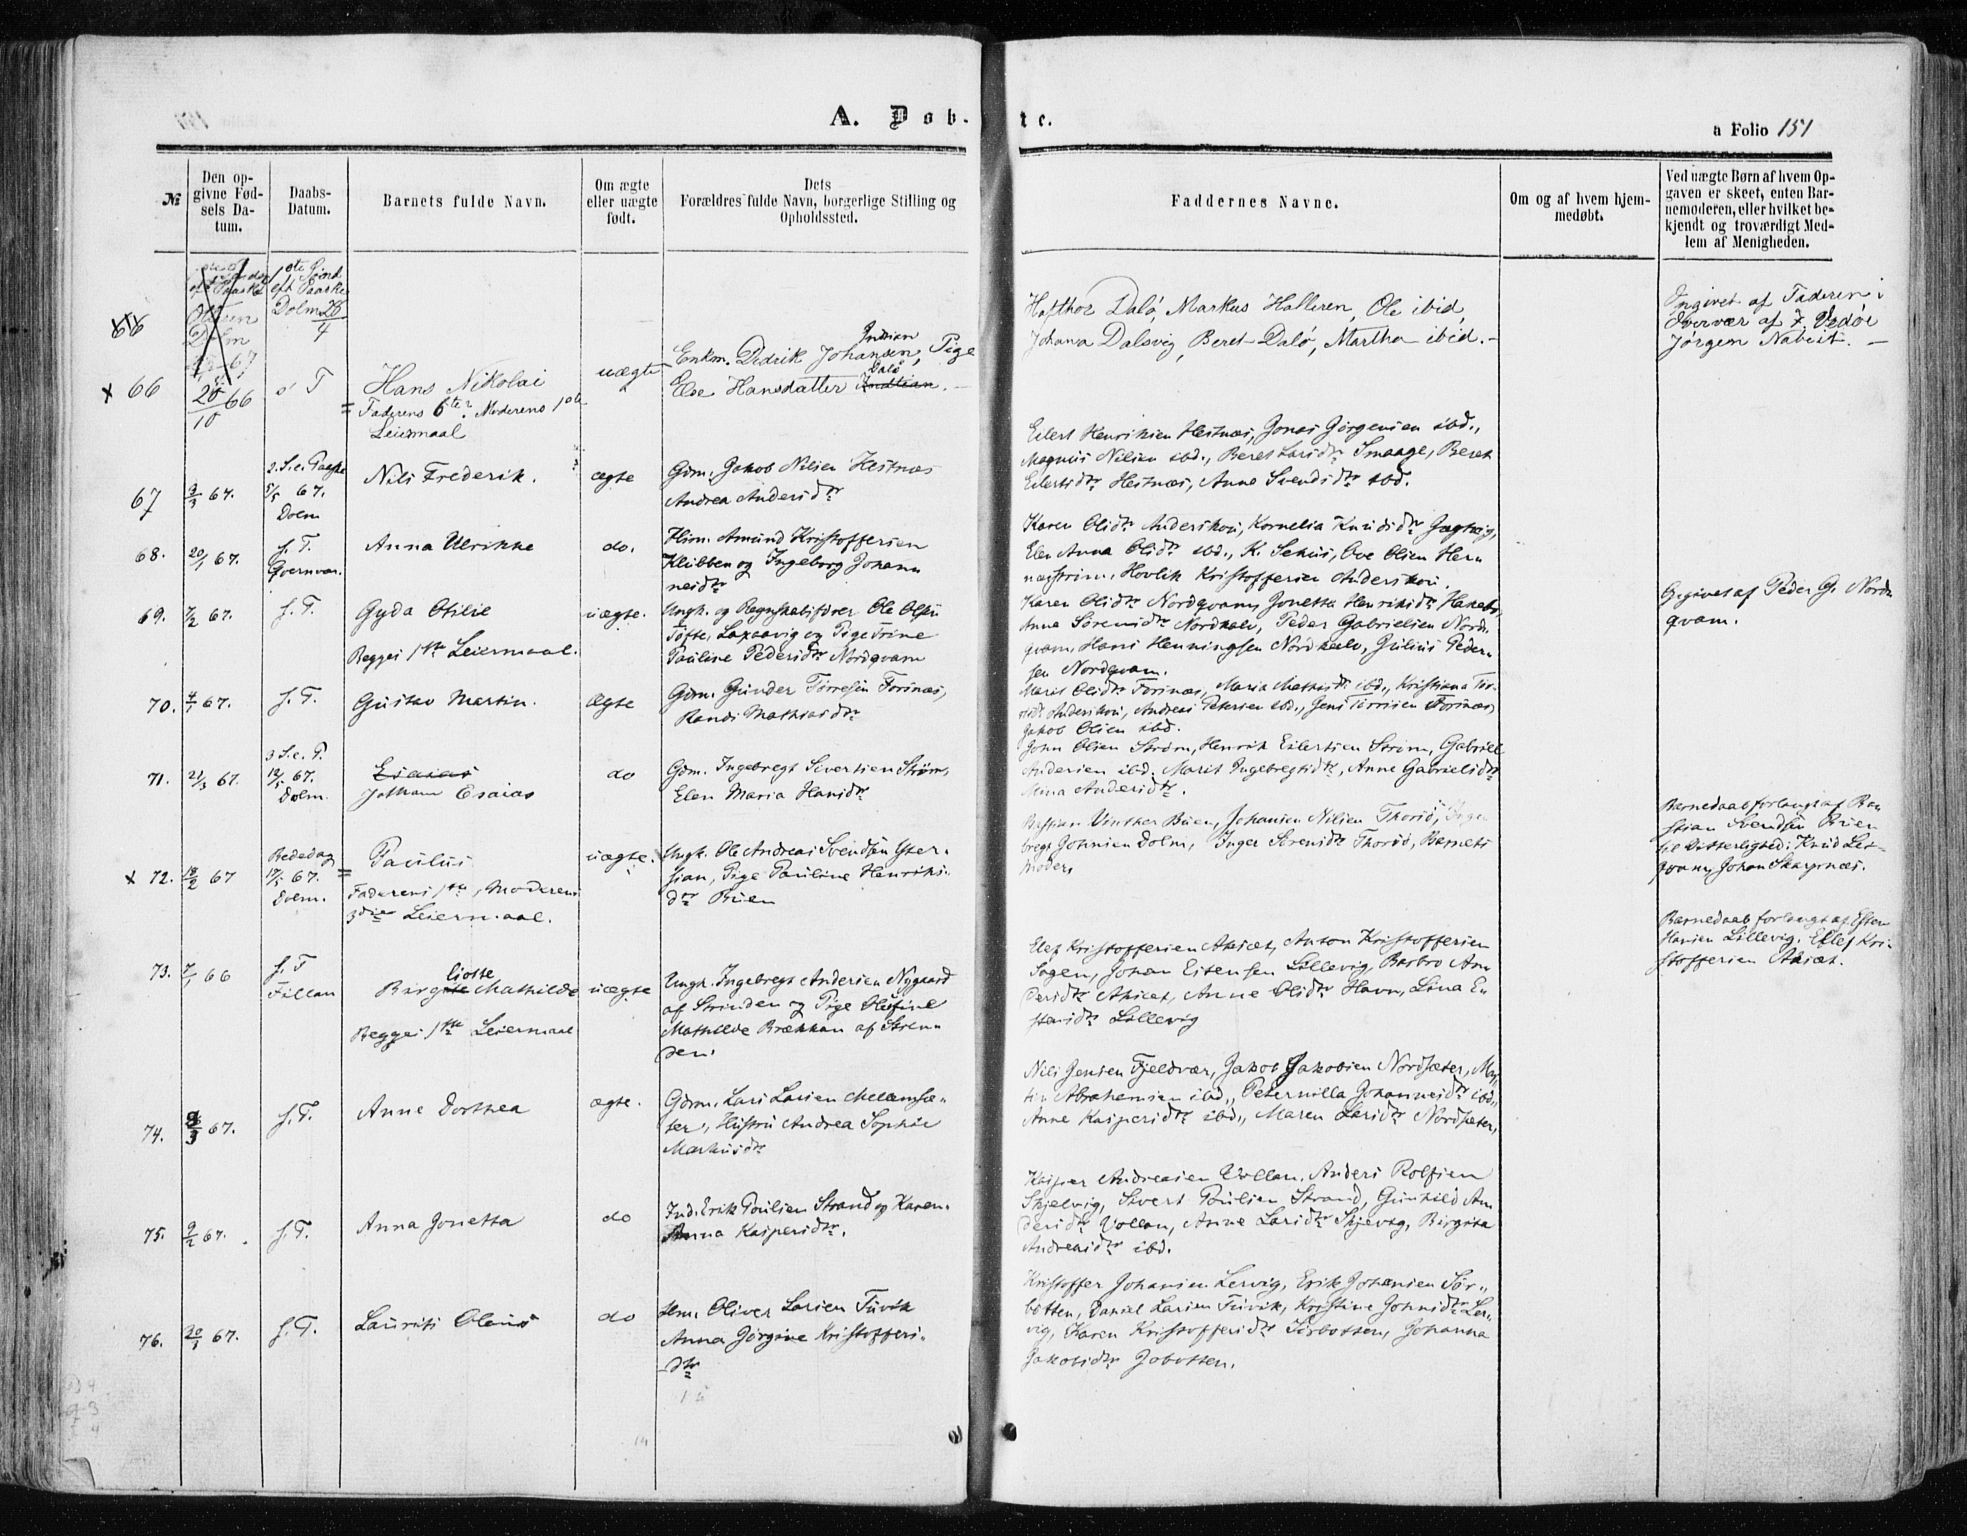 A. Døbte.
a Folio 151
№
Den opgivne Fødsels Datum.
Daabs-Datum.
Barnets fulde Navn.
Om ægte eller uægte født.
Dets Forældres fulde Navn, borgerlige Stilling og Opholdssted.
Faddernes Navne.
Om og af hvem hjemmedøbt.
Ved uægte Børn af hvem Opgaven er skeet, enten Barnemoderen, eller hvilket bekjendt og troværdigt Medlem af Menigheden.
66
1ste Sønd
eft Paaske
Dolm 28/4
x 66
20/10 66
Hans Nikolai
Faderens 6te, Moderens 1ste
Leiermaal
uægte
Enkm. Didrik Johansen Indtian, Pige
Else Hansdatter Dalø
Hafthor Dalø, Markus Hallten, Ole ibid,
Johanna Dalsvig, Beret Dalø, Martha ibid. -
Ingivet af Faderen i
Overvær af
Jørgen Nabeit. -
67
9/3 67.
2. S. e. Paaske
5/5 67.
Dolm
Nils Frederik.
ægte
Gdm. Jakob Nilsen Hestnæs
Andrea Andersdtr
Eilert Henriksen Hestnæs, Jonas Jørgensen ibd.,
Magnus Nilsen ibd., Beret Larsdtr Smaage, Beret
Eilertsdtr Hestnæs, Anne Svendsdtr ibd.
68.
20/1 67.
s. T.
Qvernvær.
Anna Ulrikke
do.
Husm. Amund Kristoffersen
Klubben og Ingeborg Johann
nesdtr
Karen Olsdtr Anderskov, Kornelia Knudsdtr
Elen Anna Olsdtr ibd., Ove Olsen Hern
Hovlik Kristoffersen Anderskov.
69.
7/2 67.
s. T.
Gyda Otilie
Begges 1ste Leiermaal.
uægte.
Ungk. og Regnskabsfører Ole Olsen
Tøfte, Laxaavig og Pige Trine
Pauline Pedersdtr Nordqvam
Karen Olsdtr Nordqvam, Jonetta Henriksdtr
Anne Sørensdtr Nordhalv, Peder Gabrielsen Nord-
qvam, Hans Henningsen Nordhalv, Julius Peder-
sen Nordqvam.
Opgivet af Peder G. Nord-
qvam.
70.
4/1 67.
s. T.
Gustav Martin.
Ægte
Gdm. Gunder Torresen Forsnæs,
Randi Mathiasdtr
Marit Olsdtr Forsnæs, Maria Mathisdtr ibd., Kristiana Tor-
resdtr Anderskov, Andreas Petersen ibd., Jens Torresen Forsnæs,
Jakob Olsen ibd.
71.
21/3 67.
3 S. e. P.
12/5 67.
Dolm.
Esaias
Johan Esaias
do
Gdm. Ingebregt Sivertsen Strøm,
Elen Maria Hansdtr
John Olsen Strøm, Henrik Eilertsen Strøm, Gabriel
Andersen ibd. Marit Ingebregtsdtr, Anne Gabrielsdtr
Mina Andersdtr.
x 72.
18/2 67
Bededag
17/5 67.
Dolm.
Paulus
Faderens 1ste, Moderens
3die Leiermaal.
uægte.
Ungk. Ole Andreas Svendsen Yster-
sian, Pige Pauline Henriks-
dtr Buen
Bastian Vinther Buen, Johansen Nilsen Thorsø, Inge
bregt Johnsen Dolm, Inger Sørensdtr Thorsø, Barnets
Moder,
Barnedaab forlangt af Ba-
stian Svendsen Buen
til Vitterlighed: Knud
Johan Skarpnæs.
73.
7/1 66
s. T
Fillan
Birgitte Mathilde
Begges 1ste Leiermaal
uægte
Ungk. Ingebregt Andersen Nygaard
af Strinden og Pige Olufine
Mathilde Brækkan af Strin-
den.
Elef Kristoffersen Akset, Anton Kristoffersen
Sagen, Johan Estensen Lillevig, Barbro An-
dersdtr Akset, Anne Olsdtr Havn, Lina E-
stensdtr Lillevig
Barnedaab forlangt af Esten
Hansen Lillevig. Ellef Kri-
stoffersen Akset.
74.
9/3 67.
s. T.
Anne Dorthea
ægte.
Gdm. Lars Larsen Mellemsæ-
ter, Hustru Andrea Sophie
Markusdtr
Nils Jensen Fjeldvær, Jakob Jakobsen Nordsæter, Mar-
tin Abrahamsen ibd., Peternilla Johannesdtr ibd.,
Anne Kaspersdtr ibd., Maren Larsdtr Nordsæter,
75.
9/2 67.
s. T.
Anna Jonetta
do
Ind. Erik Poulsen Strand og Karen
Anna Kaspersdtr.
Kasper Andreasen Vollan, Anders Rolfsen
Skjelvig, Sivert Poulsen Strand, Gunhild An-
dersdtr Vollan, Anne Larsdtr Skjevig, Birgitta
Andreasdtr ibd.
76.
20/1 67.
s. T.
Laurits Olaus
do
Hm. Oliver Larsen Tuvik
Anna Jørgine Kristoffers-
dtr
Kristoffer Johansen Lervig, Erik Johansen Sør-
botten, Daniel Larsen Tuvik, Kristine Johnsdtr Ler-
vig, Karen Kristoffersdtr Sørbotten, Johanna
Jakobsdtr Jobotten.